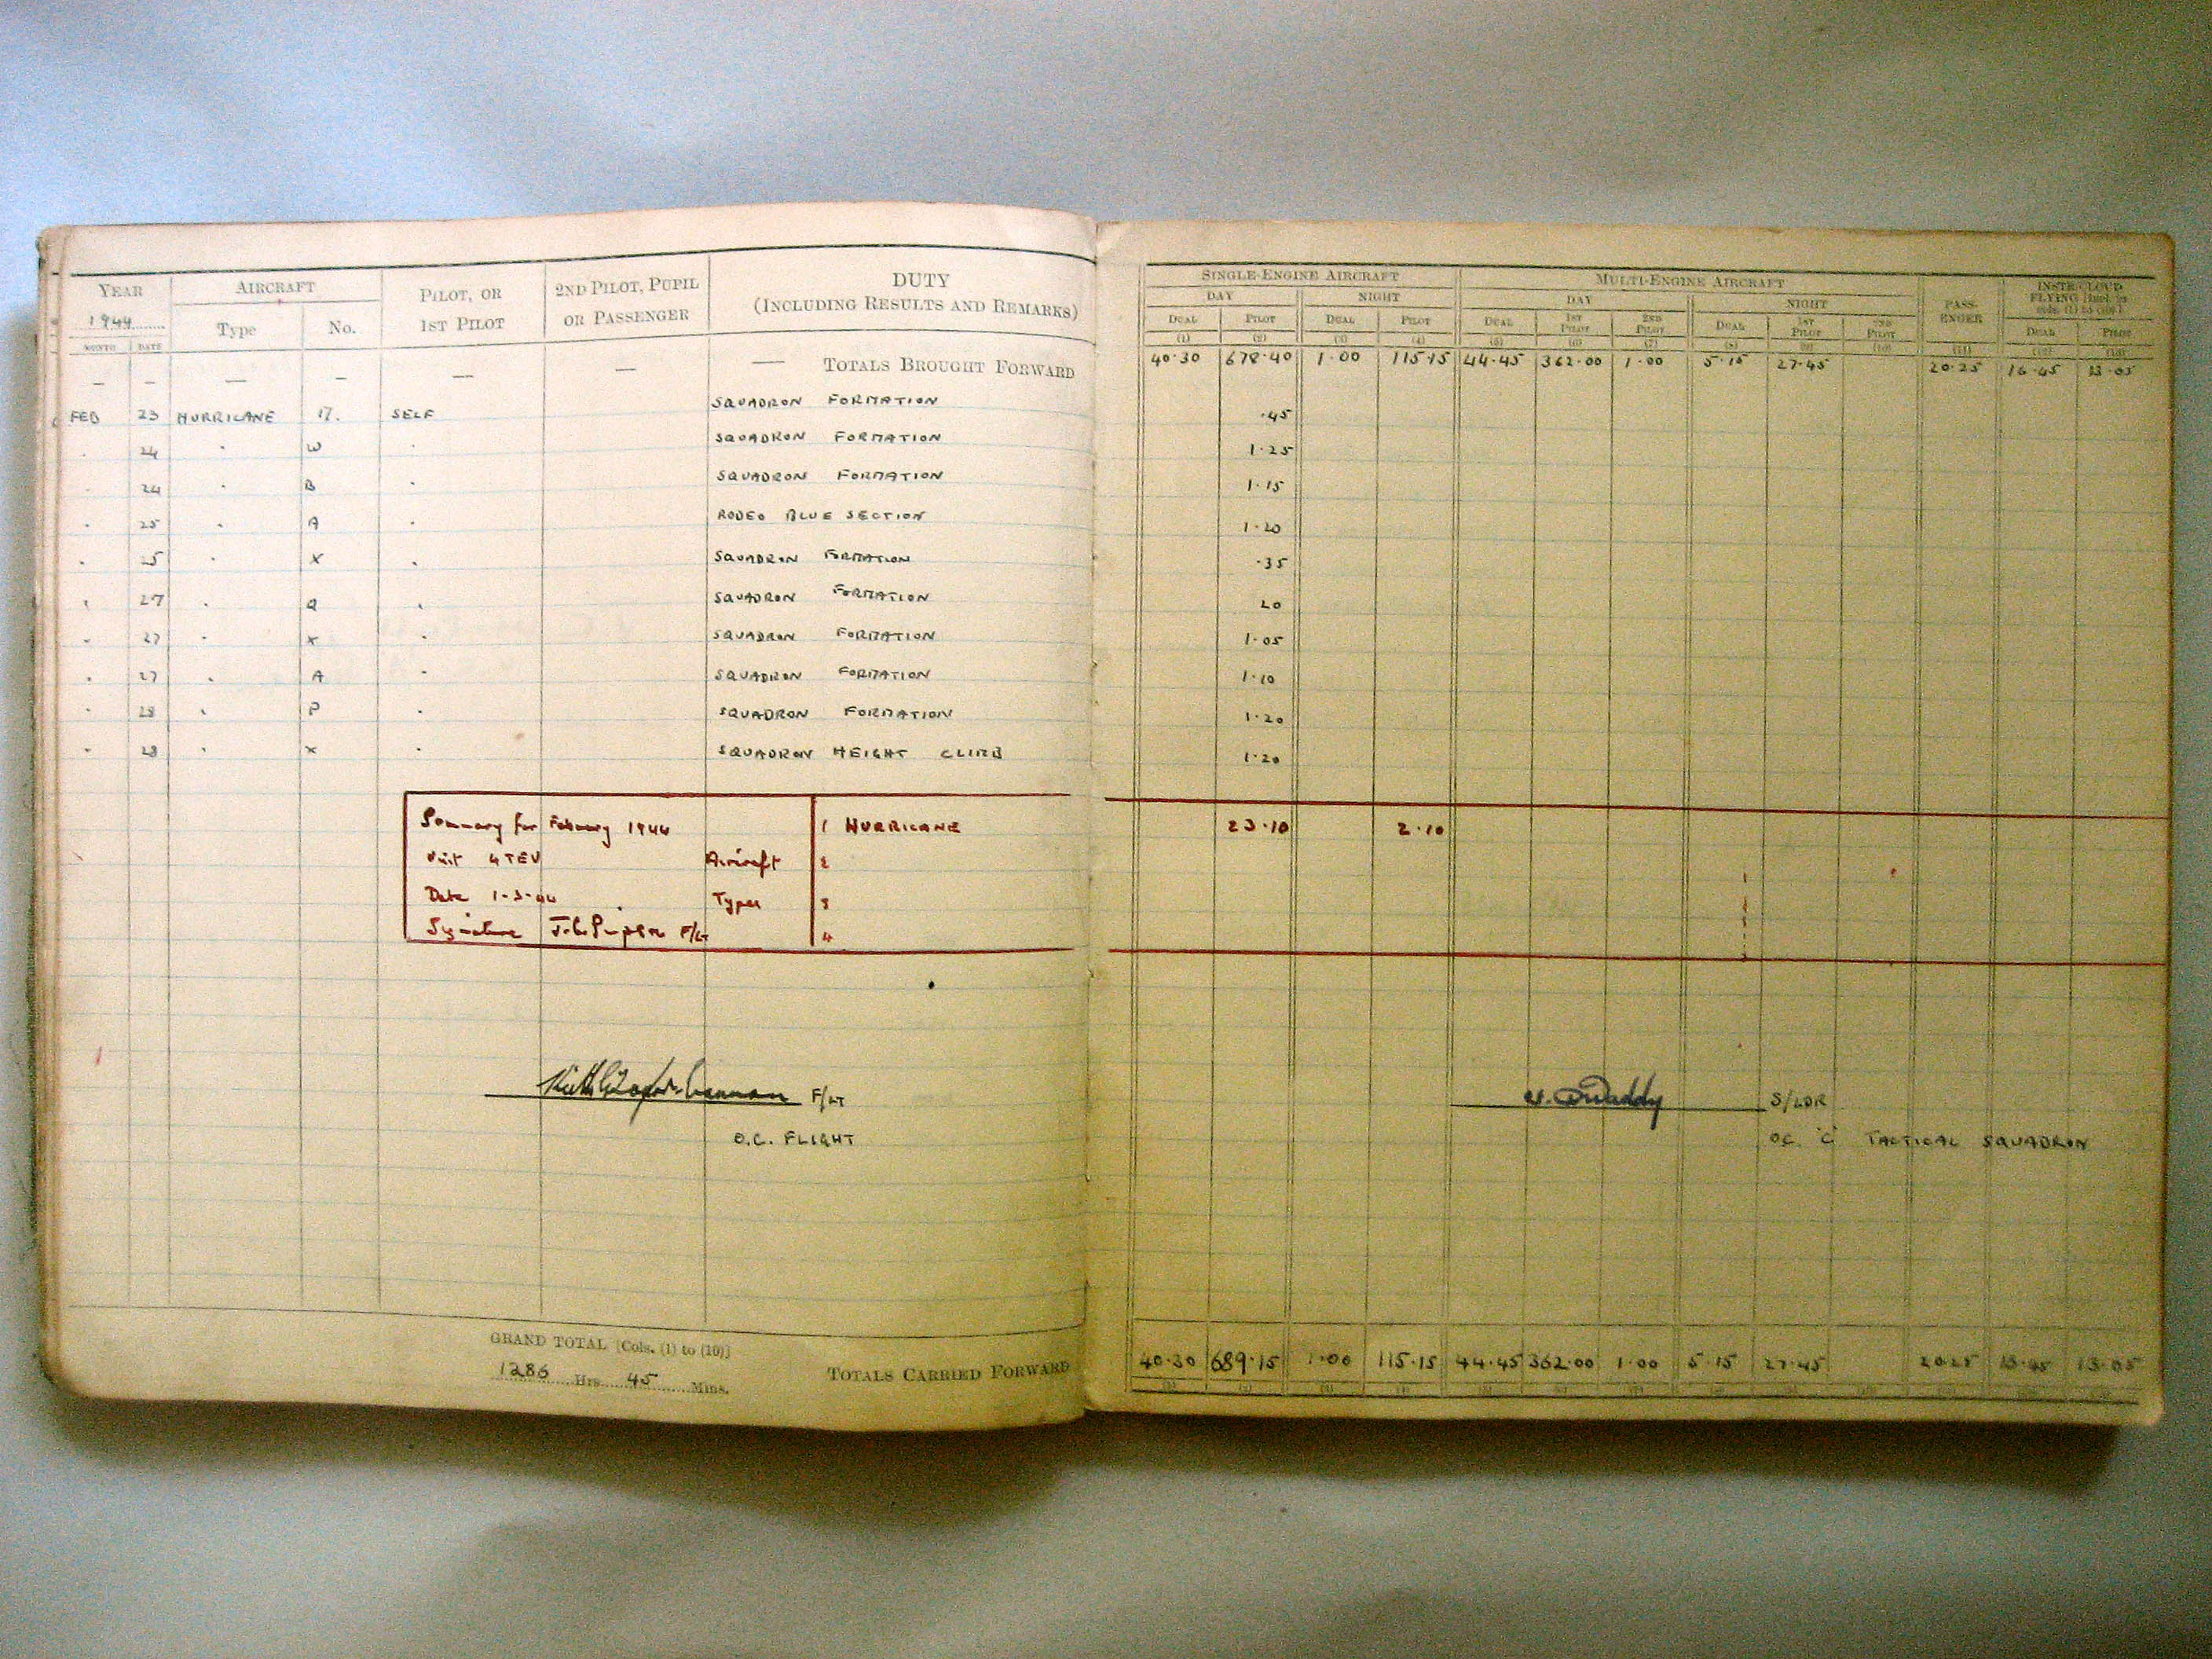 YEAR AIRCRAFT PILOT, OR 1ST PILOT 2ND PILOT, PUPIL OR PASSENGER DUTY (INCLUDING RESULTS AND REMARKS) SINGLE-ENGINE AIRCRAFT MULTI-ENGINE AIRCRAFT PASS-ENGER INSTR/CLOUD FLYING
1944 Type No. DAY NIGHT DAY NIGHT
MONTH DATE DUAL PILOT DUAL PILOT DUAL 1ST PILOT 2ND PILOT DUAL 1ST PILOT 2ND PILOT DUAL PILOT
(1) (2) (3) (4) (5) (6) (7) (8) (9) (10) (11) (12) (13)
— — — — — — — TOTALS BROUGHT FORWARD 40·30 678·40 1·00 115·15 44·45 362·00 1·00 5·15 27·45 20·25 13·05
FEB 23 HURRICANE 17. SELF SQUADRON FORMATION ·45
" 24 " W " SQUADRON FORMATION 1·25
" 24 " B " SQUADRON FORMATION 1·15
" 25 " A " RODEO BLUE SECTION 1·20
" 25 " X " SQUADRON FORMATION ·35
" 27 " Q " SQUADRON FORMATION 20
" 27 " X " SQUADRON FORMATION 1·05
" 27 " A " SQUADRON FORMATION 1·10
" 28 " P " SQUADRON FORMATION 1·20
" 28 " X " SQUADRON HEIGHT CLIMB 1·20
Summary for February 1944 1 HURRICANE 23·10 2·10
Unit 4TEU Aircraft 2
Date 1-3-44 Types 3
Signature F/Lt 4
F/LT S/LDR
O.C. FLIGHT OC 'C' TACTICAL SQUADRON
GRAND TOTAL [Cols. (1) to (10)]
1286 Hrs. 45 Mins. TOTALS CARRIED FORWARD 40·30 689·15 1·00 115·15 44·45 362·00 1·00 5·15 27·45 20·25 13·05